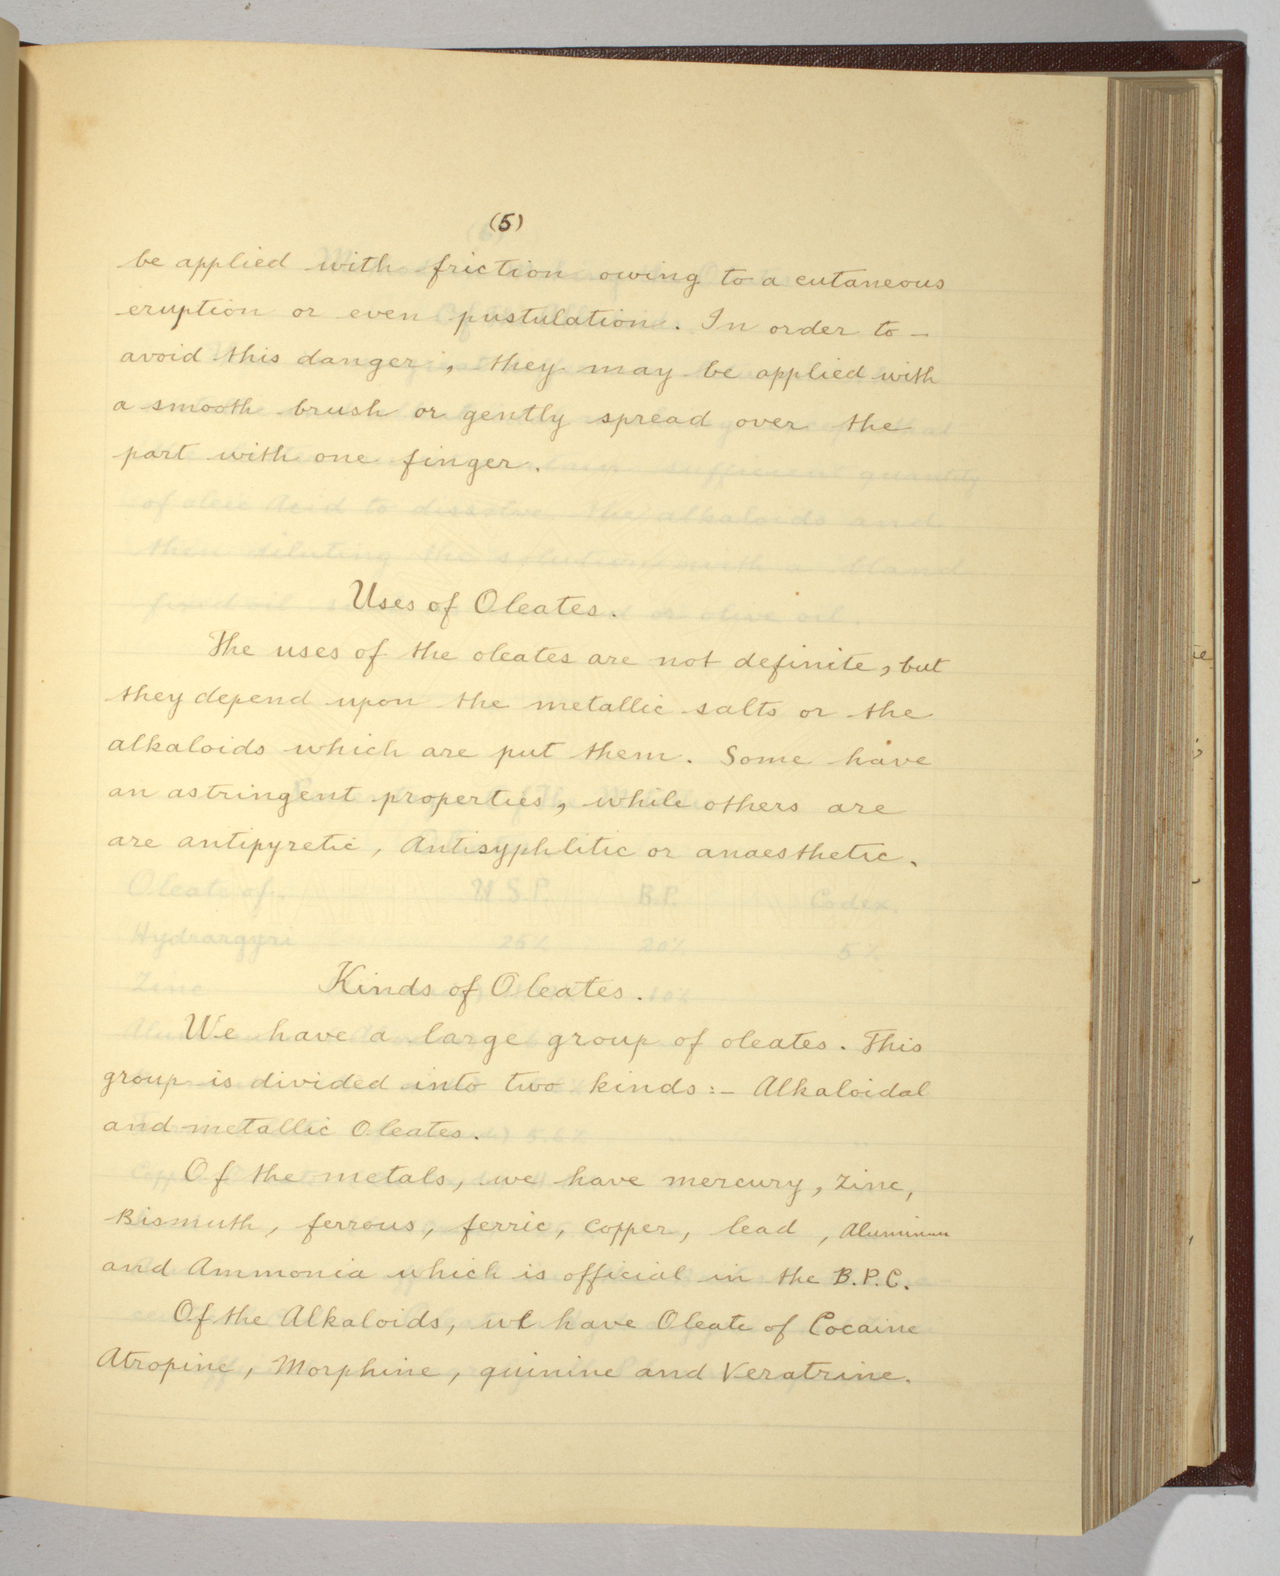 (5)
be applied with friction owing to a cutaneous
eruption or even pustulation. In order to -
avoid this danger, they may be applied with
a smooth brush or gently spread over the
part with one finger.
Uses of Oleates.
The uses of the oleates are not definite, but
they depend upon the metallic salts or the
alkaloids which are put them. Some have
an astringent properties, while others are
are antipyretic, Antisyphlitic or anaesthetic.
Kinds of Oleates.
We have a large group of oleates. This
group is divided into two kinds:- Alkaloidal
and metallic Oleates.
Of the metals, we have mercury, Zinc,
Bismuth, ferrous, ferric, Copper, lead, Aluminum
and Ammonia which is official in the B.P.C.
Of the Alkaloids, we have Oleate of Cocaine
Atropine, Morphine, quinine and Veratrine.